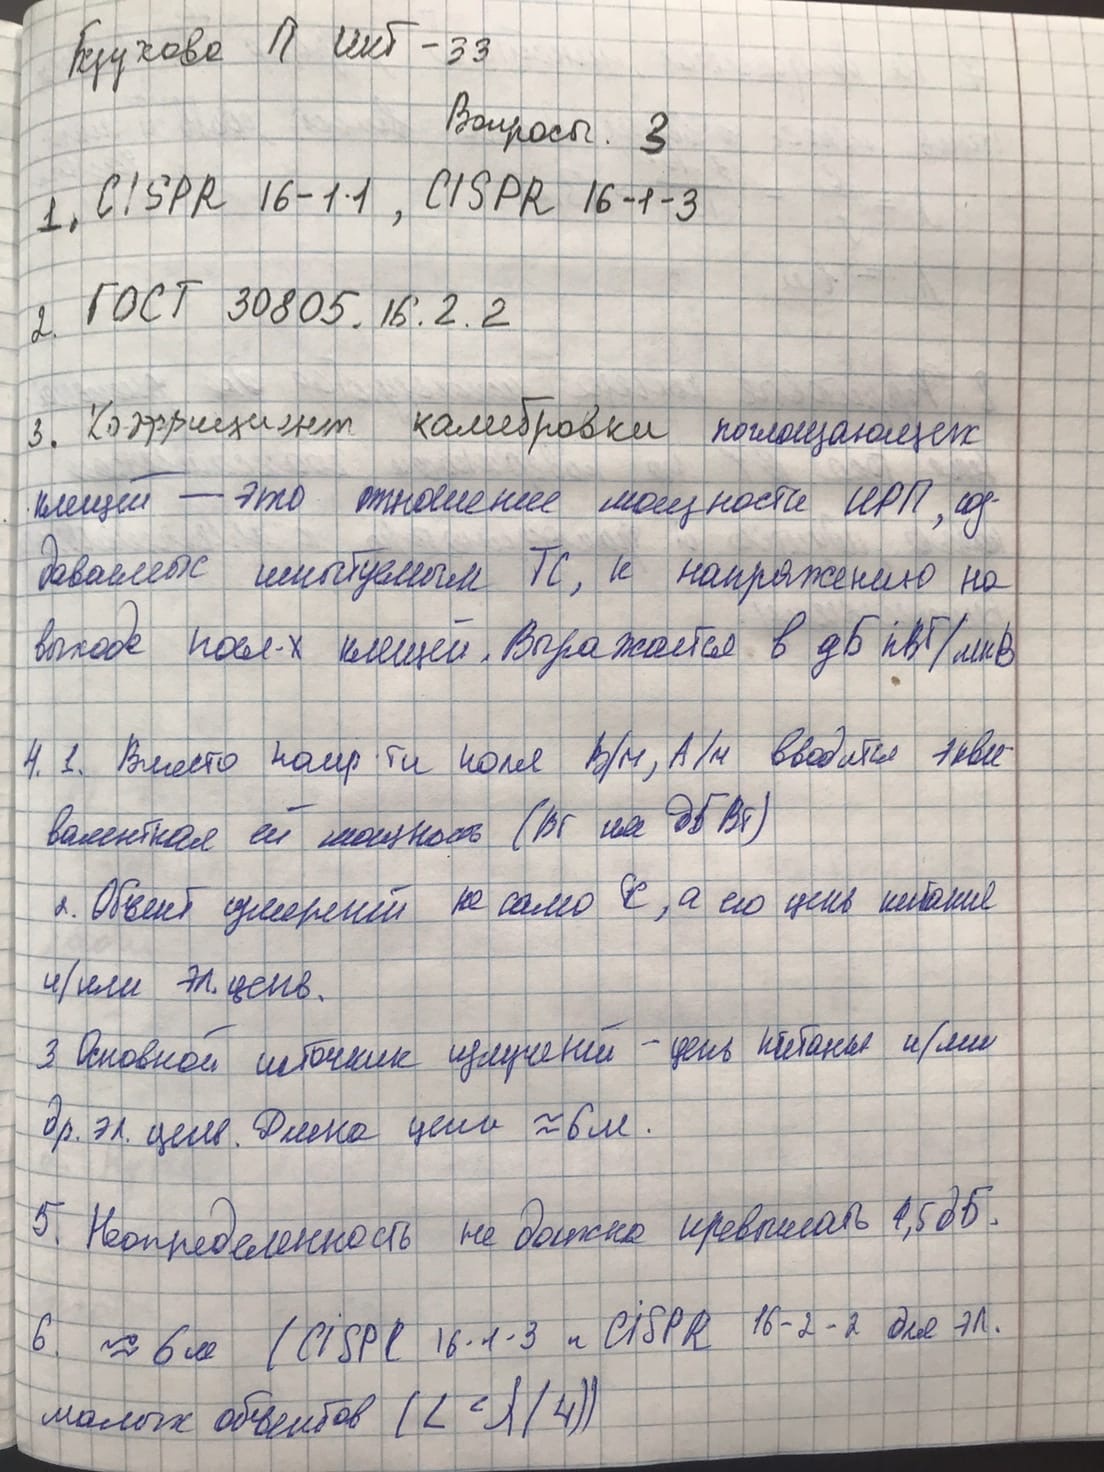 П ИКТ-33
Вопросы. 3
1. CISPR 16-1-1, CISPR 16-1-3
2. ГОСТ 30805.16.2.2
3. Коэффициент калибровки поглощающих
клещей — это отношение мощности ИРП, соз-
даваемых испытуемым ТС, к напряжению на
выходе погл-х клещей. Выражается в дБ пВт/мкВ
4. 1. Вместо напр-ти поля В/м, А/м вводится экви-
валентная ей мощность (Вт или дБВт)
2. Объект измерений не само ТС, а его цепь питания
и/или эл. цепь.
3 Основной источник излучений - цепь питания и/или
др. эл. цепь. Длина цепи ≈6м.
5. Неопределенность не должна превышать 1,5дБ.
6. ≈ 6м (CISPR 16-1-3 и CISPR 16-2-2 для эл.
малых объектов (L<λ/4))